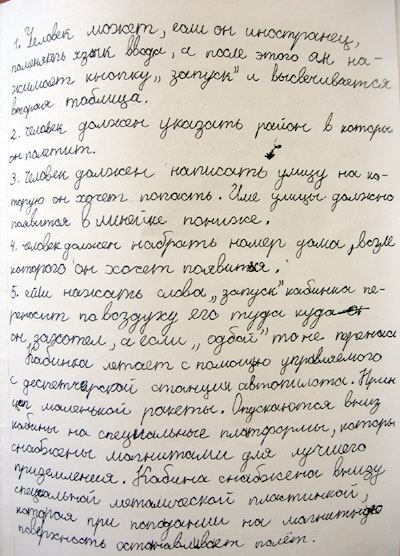 1. Человек может, если он иностранец,
поменять язык ввода, а после этого он на-
жимает кнопку „запуск" и высвечивается
вторая таблица.
2. человек должен указать район в которы
он полетит.
3. Человек должен написать улицу на ко-
торую он хочет попасть. Имя улицы должно
появится в линейке пониже.
4. человек должен набрать номер дома, возле
которого он хочет появится.
5. если нажать слова „запуск" кабинка пе-
реносит по воздуху его туда куда
он захотел, а если „отбой" то не перенос
Кабинка летает с помощью управляемого
с деспетчерской станции автопилота. Прин
цип маленькой ракеты. Опускаются вниз
кабины на специальные платформы, которы
снабжены магнитами для лучшего
приземления. Кабина снабжена внизу
специальной металической пластинкой,
которая при попадании на магнитную
поверхность останавливает полёт.